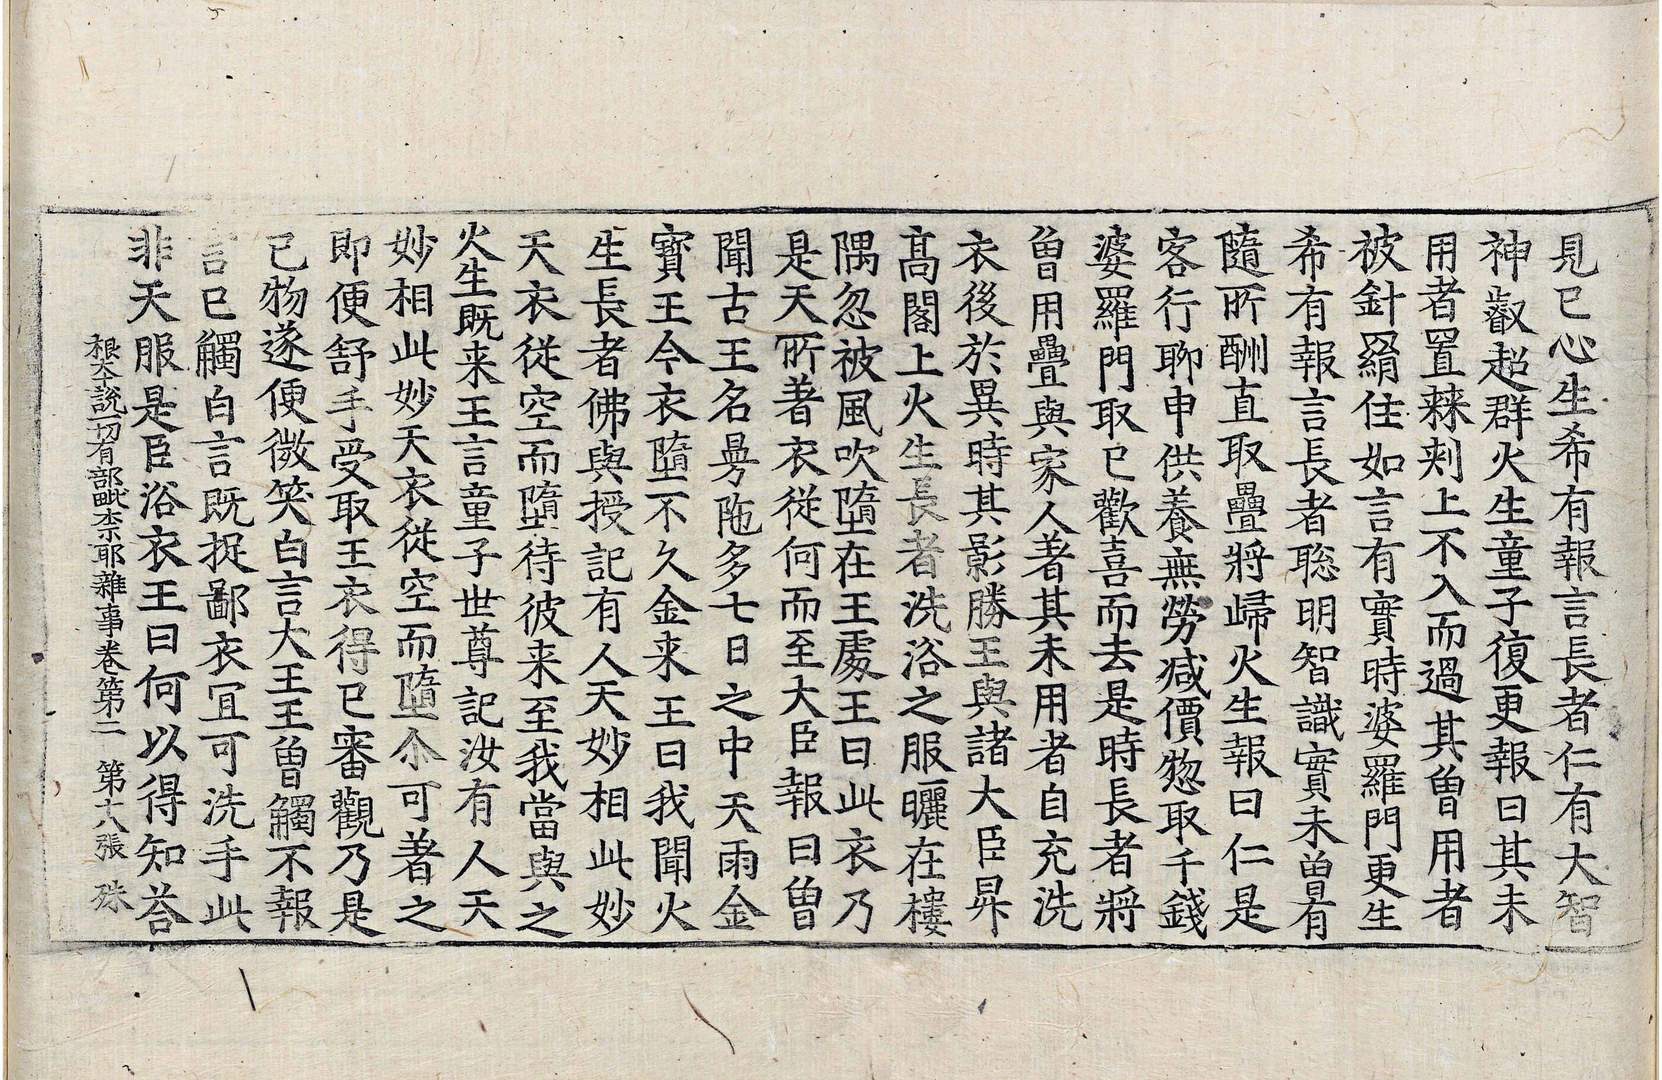 見已心生希有報言長者仁有大智
神叡超群火生童子復更報曰其未
用者置棘刺上不入而過其曾用者
被針罥住如言有實時婆羅門更生
希有報言長者聡明智識實未曾有
隨所酬直取疊將歸火生報曰仁是
客行聊申供養無勞减價惣取千錢
婆羅門取已歡喜而去是時長者將
曾用疊與家人著其未用者自充洗
衣後於異時其影勝王與諸大臣昇
髙閣上火生長者洗浴之服曬在樓
隅忽被風吹墮在王處王曰此衣乃
是天所著衣從何而至大臣報曰曾
聞古王名曼陁多七日之中天雨金
寳王今衣墮不久金来王曰我聞火
生長者佛與授記有人天妙相此妙
天衣從空而墮待彼来至我當與之
火生既来王言童子世尊記汝有人天
妙相此妙天衣從空而墮尒可著之
即便舒手受取王衣得已審觀乃是
已物遂便微笑白言大王王曾觸不報
言已觸白言既捉鄙衣冝可洗手此
非天服是臣浴衣王曰何以得知荅
根本說切有部毗柰耶雜事卷第二 第十八張 殊